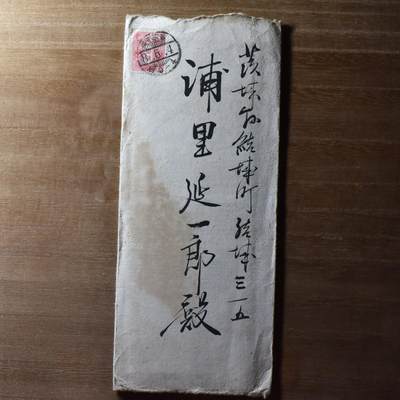 茨城縣結城町結城三一五
浦里延一郎殿